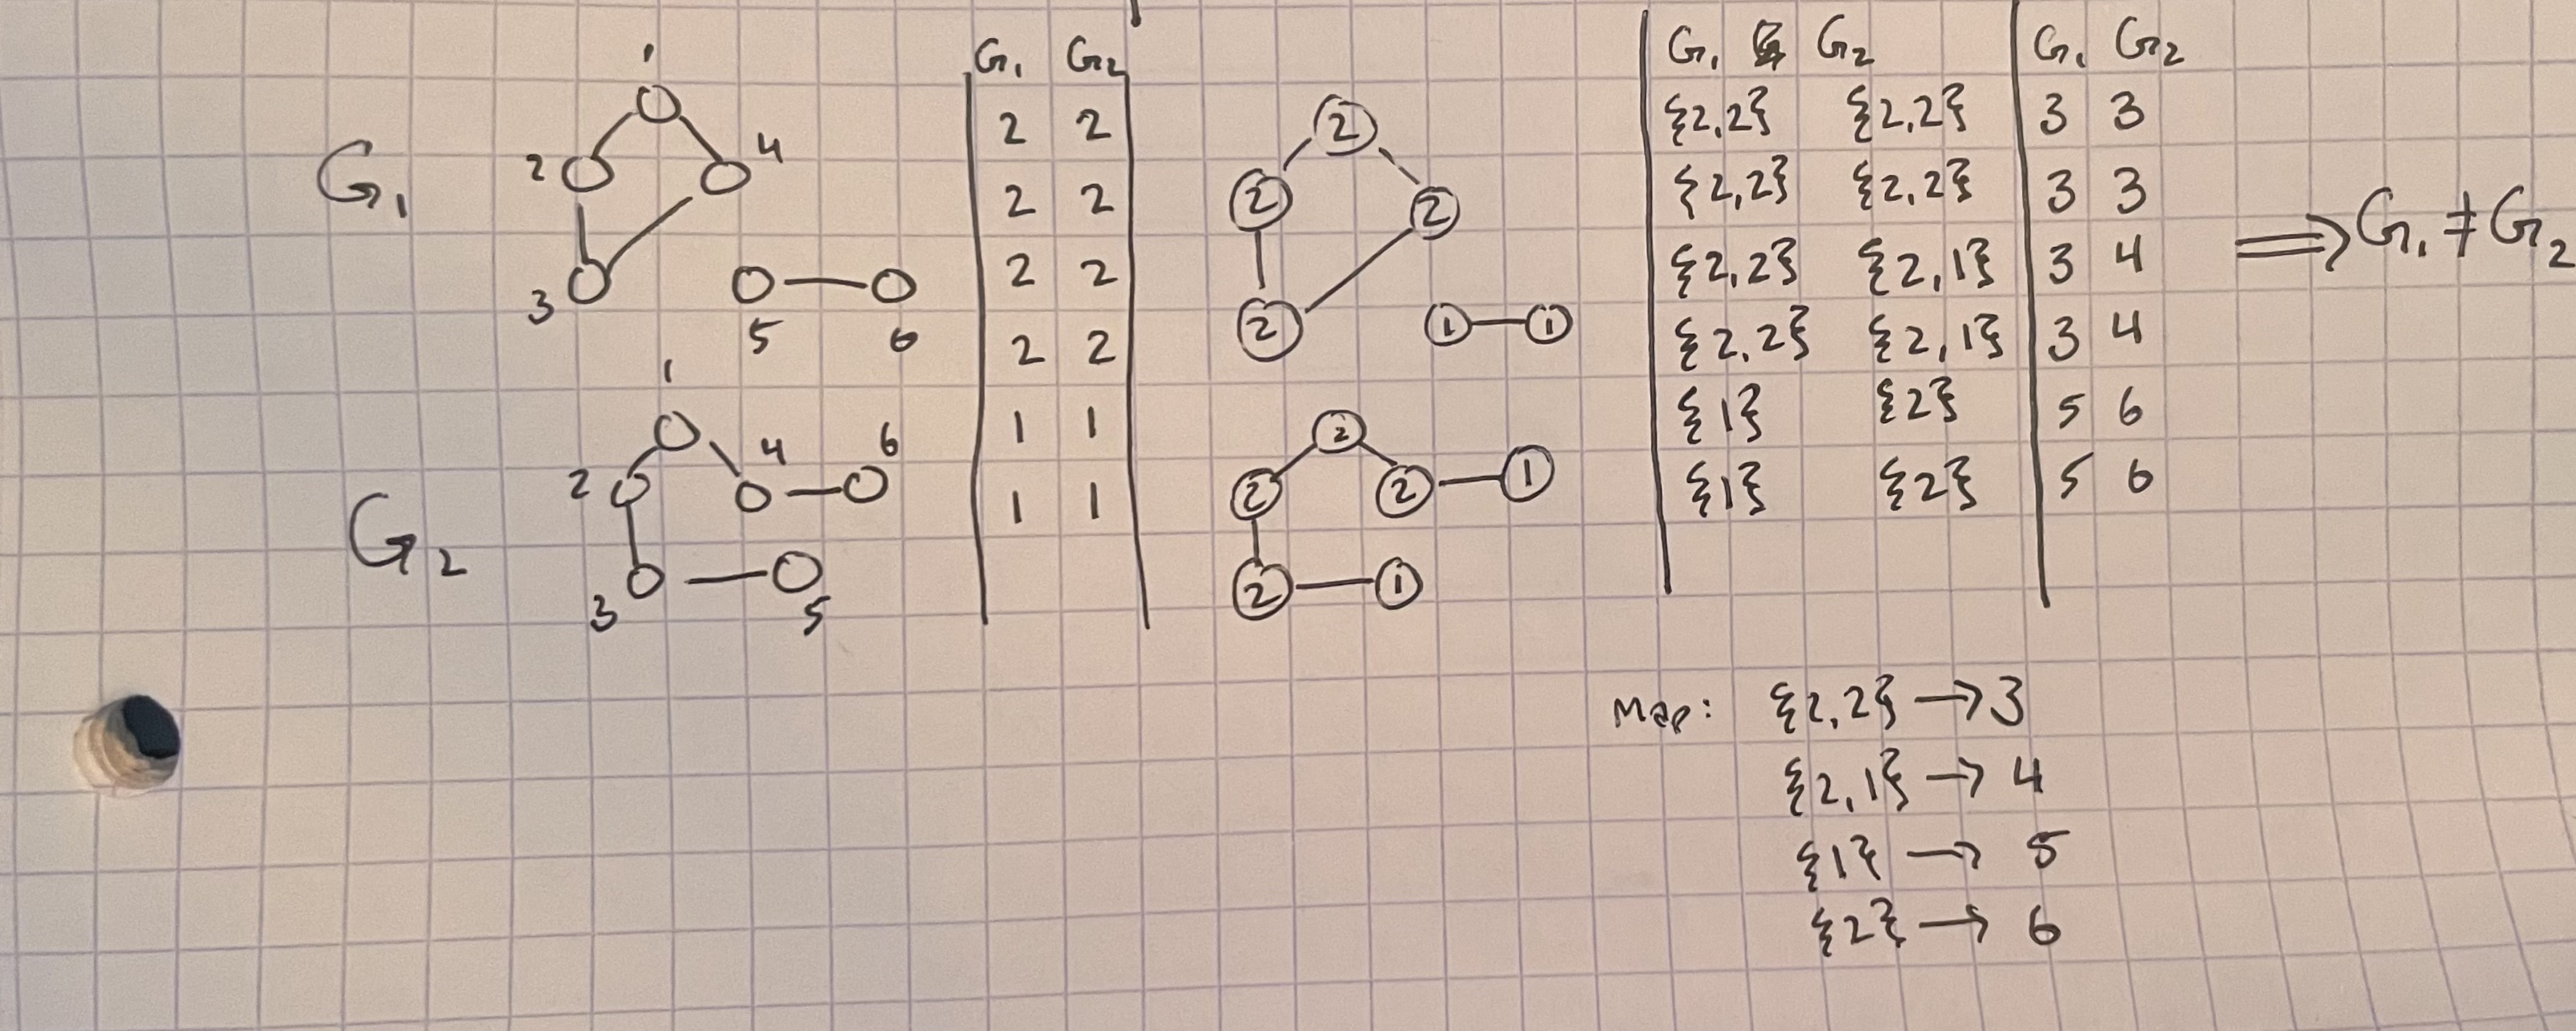 G₁
1
2 4
3
5 6
G₂
1
2 4 6
3 5
G₁ G₂
2 2
2 2
2 2
2 2
1 1
1 1
2
2 2
2 1 1
2
2 2 1
2 1
G₁ G₂
{2,2} {2,2}
{2,2} {2,2}
{2,2} {2,1}
{2,2} {2,1}
{1} {2}
{1} {2}
G₁ G₂
3 3
3 3
3 4
3 4
5 6
5 6
⟹ G₁ ≠ G₂
Map: {2,2} → 3
{2,1} → 4
{1} → 5
{2} → 6